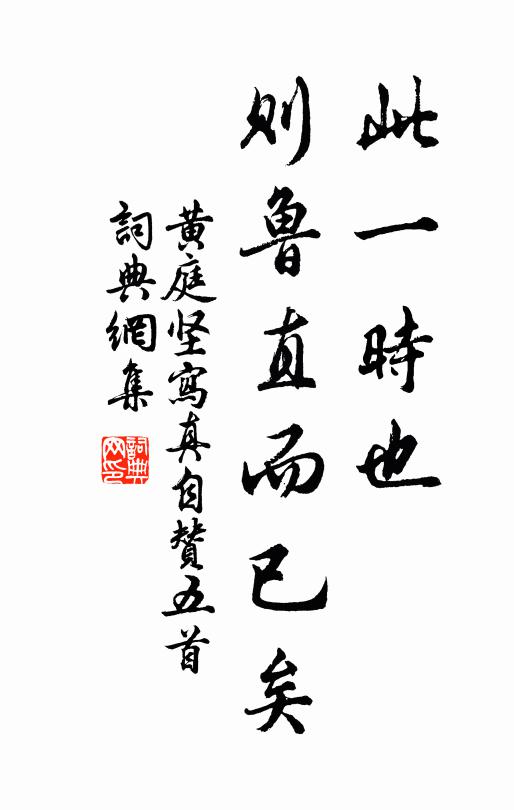 此一時也
則魯直而已矣
黄庭坚寫真自贊五首
詞典網集
詞典網印